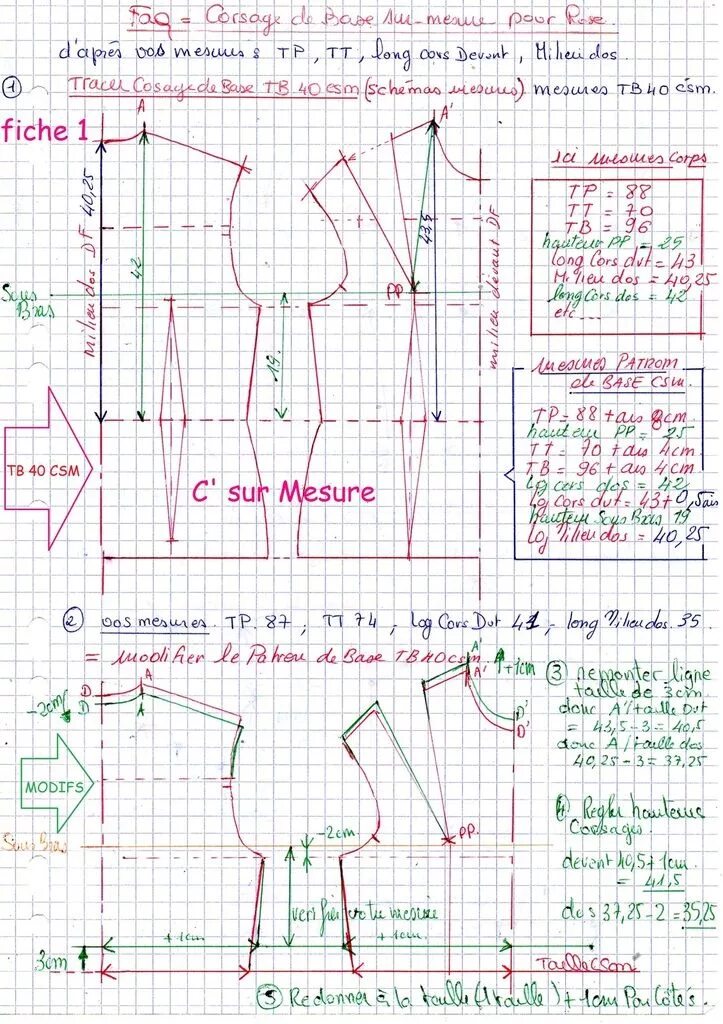 FaQ = Corsage de Base sur-mesure pour Rose.
d'après vos mesures TP, TT, long cors Devant, Milieu dos.
① Tracer Cosage de Base TB 40 csm (schémas mesures) mesures TB 40 csm.
fiche 1
A
A'
ici mesures corps
TP = 88
TT = 70
TB = 96
hauteur PP = 25
long Cors dvt = 43
Milieu dos = 40,25
long Cors dos = 42
etc....
milieu dos DF 40,25
42
43,5
PP
milieu devant DF
Sous Bras
19.
mesures PATROM
de BASE CSM.
TP = 88 + ais 8cm.
hauteur PP = 25
TT = 70 + ais 4cm
TB = 96 + ais 4cm
Lg cors dos = 42
Lg Cors dvt = 43+0,5 ais
hauteur Sous Bras 19
Lg Milieu dos = 40,25
TB 40 CSM
C' sur Mesure
② vos mesures. TP. 87 ; TT 74 ; log Cors Dvt 41 ,- long Milieu dos. 35
= modifier le Patron de Base TB 40 csm.
-2cm
D
D
A
A
A'
A'
+1cm
D'
D'
③ remonter ligne
taille de 3cm.
donc A'/taille Dvt
= 43,5-3 = 40,5
donc A/taille dos
40,25-3 = 37,25
MODIFS
Sous Bras
-2cm
PP.
④ Regler hauteurs
Corsages.
devant 40,5+1cm
= 41,5
dos 37,25-2 = 35,25
verifier votre mesure
+1cm
+1cm
3cm
Taille CSM
⑤ Redonner à la taille (1 taille) + 1cm Par Côtés.